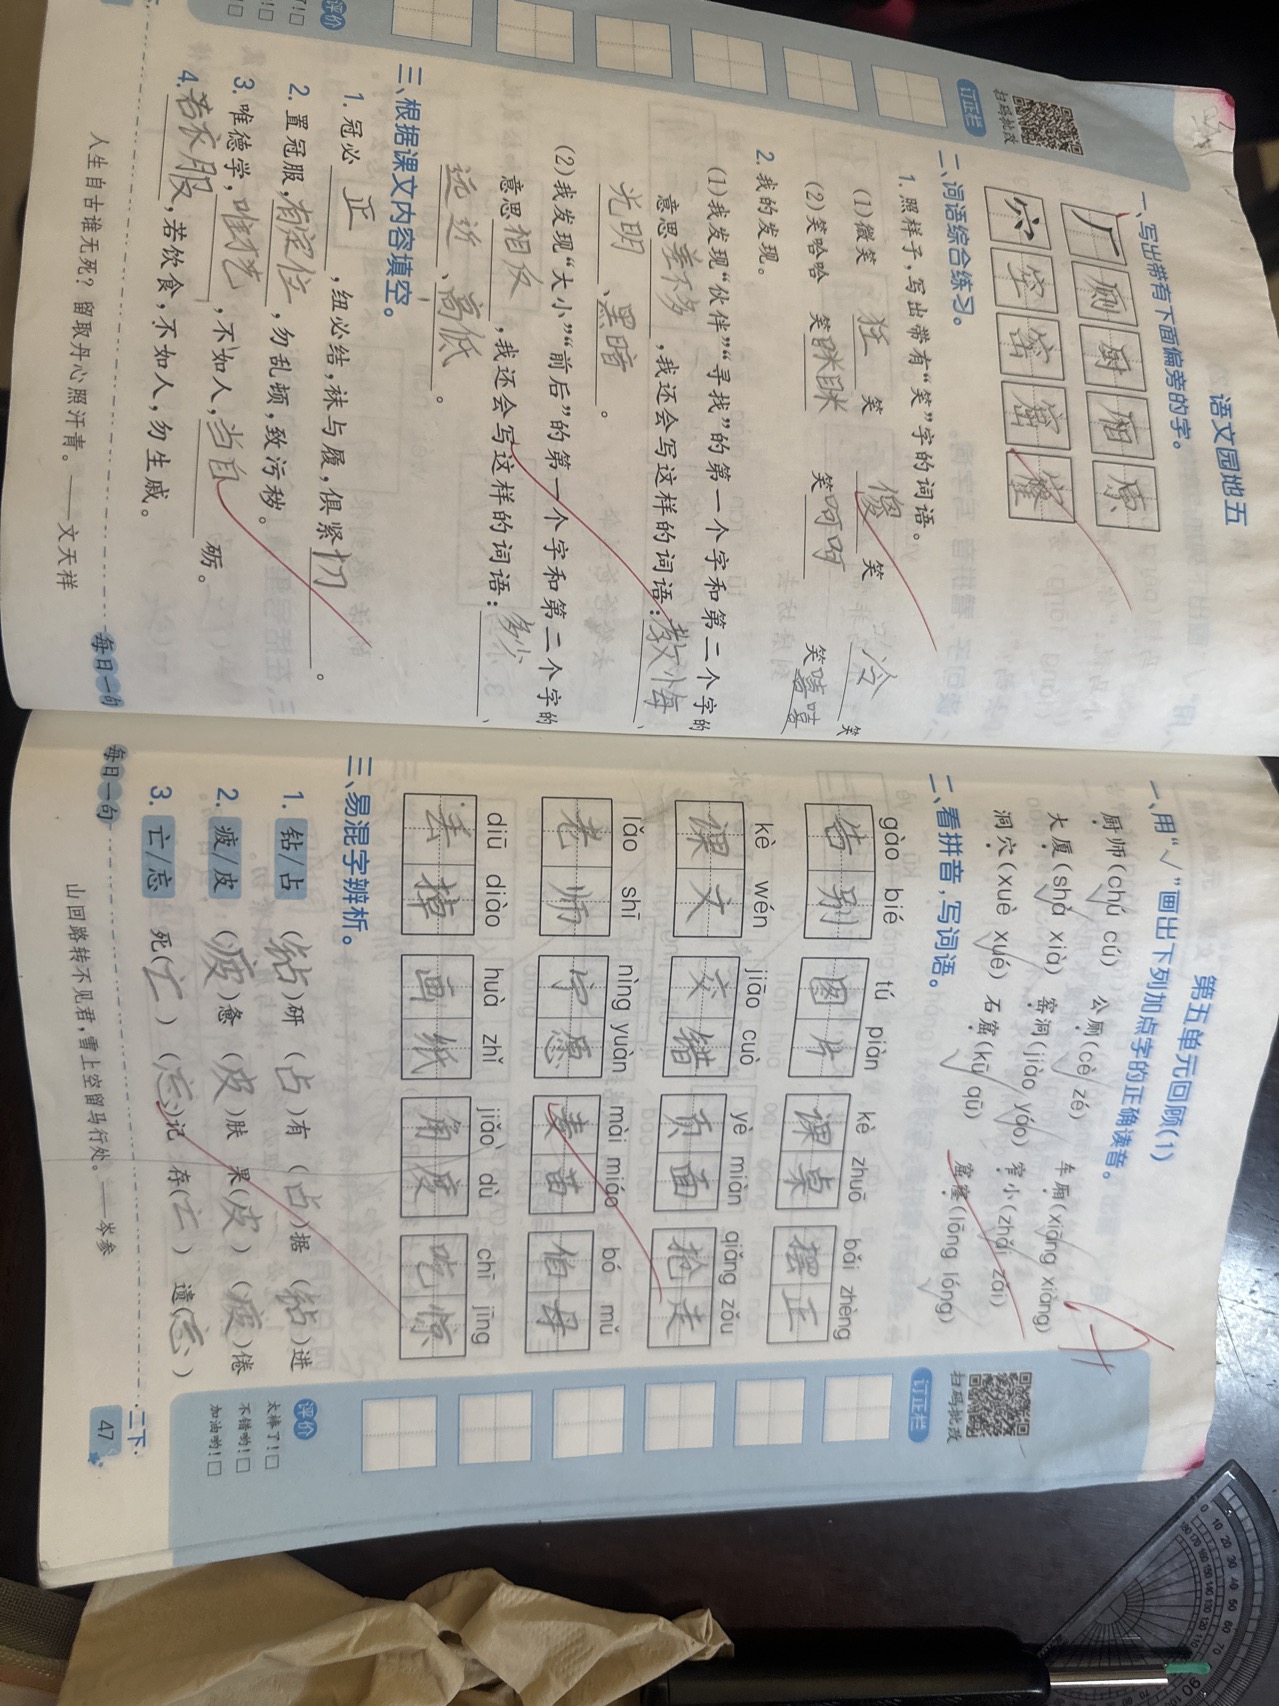 语文园地五
一、写出带有下面偏旁的字。
厂 厕 厨 厢 原
穴 窄 窑 窟 窿
二、词语综合练习。
1. 照样子,写出带有“笑”字的词语。
(1)微笑 狂笑 傻笑 冷笑
(2)笑哈哈 笑眯眯 笑呵呵 笑嘻嘻
2. 我的发现。
(1)我发现“伙伴”“寻找”的第一个字和第二个字的
意思差不多,我还会写这样的词语:教悔、
光明、黑暗。
(2)我发现“大小”“前后”的第一个字和第二个字的
意思相反,我还会写这样的词语:多少、
远近、高低。
三、根据课文内容填空。
1. 冠必正,纽必结,袜与履,俱紧切。
2. 置冠服,有定位,勿乱顿,致污秽。
3. 唯德学,唯才艺,不如人,当自砺。
4. 若衣服,若饮食,不如人,勿生戚。
人生自古谁无死?留取丹心照汗青。——文天祥
每日一句
扫码批改
订正栏
评价
第五单元回顾(1)
一、用“√”画出下列加点字的正确读音。
厨师(chú cú) 公厕(cè zé) 车厢(xiāng xiàng)
大厦(shà xià) 窑洞(jiào yáo) 窄小(zhǎi zǎi)
洞穴(xuè xué) 石窟(kū qū) 窟窿(lōng lóng)
二、看拼音,写词语。
gào bié tú piàn kè zhuō bǎi zhèng
告别 图片 课桌 摆正
kè wén jiāo cuò yè miàn qiǎng zǒu
课文 交错 页面 抢走
lǎo shī nìng yuàn mài miáo bó mǔ
老师 宁愿 麦苗 伯母
diū diào huà zhǐ jiǎo dù chī jīng
丢掉 画纸 角度 吃惊
三、易混字辨析。
1. 钻/占 (钻)研 (占)有 (占)据 (钻)进
2. 疲/皮 (疲)惫 (皮)肤 果(皮) (疲)倦
3. 亡/忘 死(亡) (忘)记 存(亡) 遗(忘)
每日一句
山回路转不见君,雪上空留马行处。——岑参
扫码批改
订正栏
评价
太棒了!□
不错哟!□
加油哟!□
二下·
47